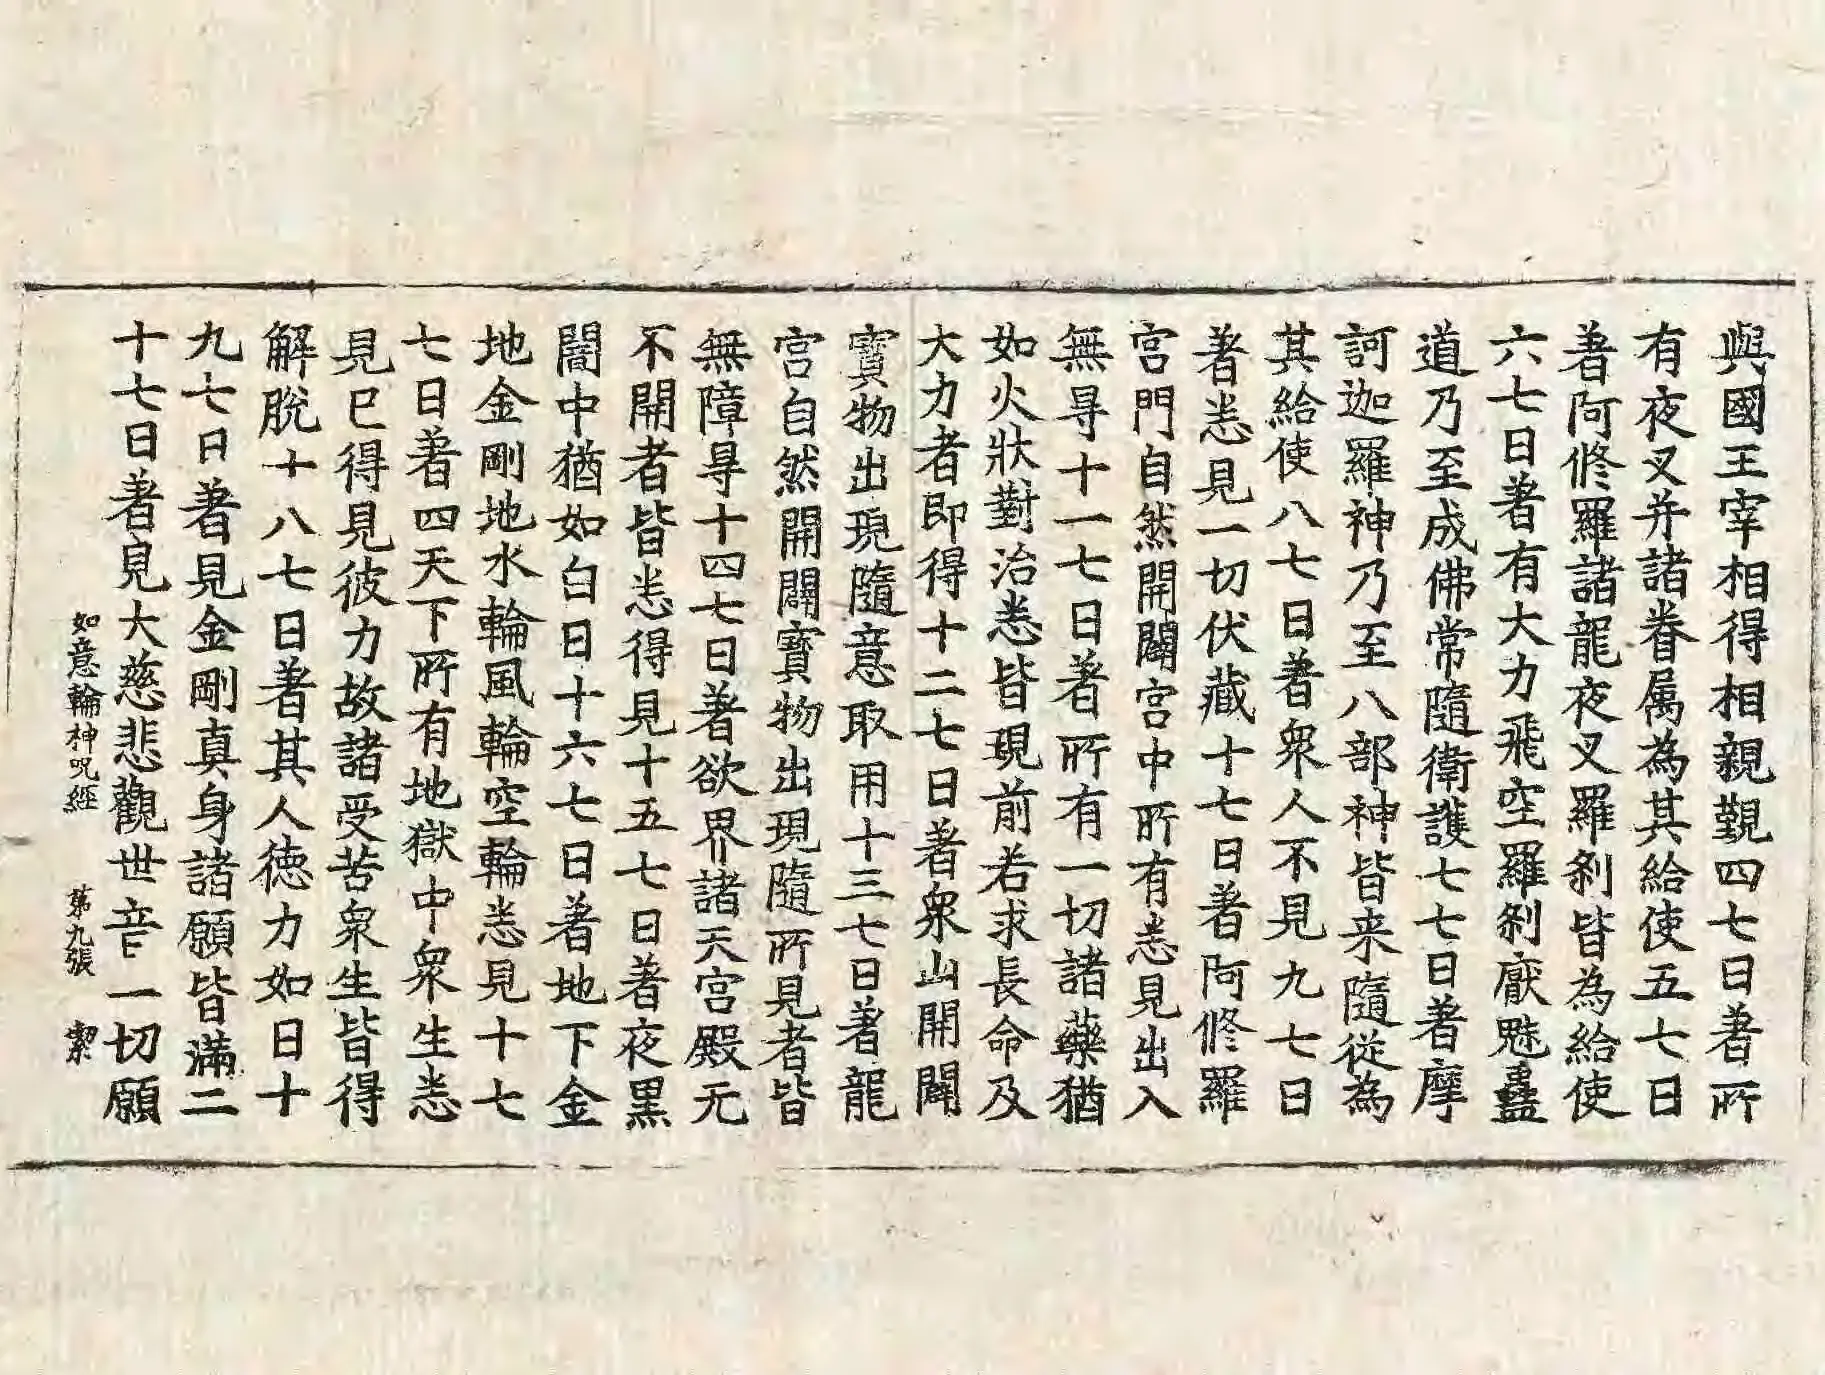 與國王宰相得相親觐四七日著所
有夜叉并諸眷属為其給使五七日
著阿修羅諸龍夜叉羅刹皆為給使
六七日著有大力飛空羅刹厭魅蠱
道乃至成佛常隨衛護七七日著摩
訶迦羅神乃至八部神皆来隨從為
其給使八七日著衆人不見九七日
著悉見一切伏藏十七日著阿修羅
宫門自然開闢宫中所有悉見出入
無㝵十一七日著所有一切諸藥猶
如火狀對治悉皆現前若求長命及
大力者即得十二七日著衆山開闢
寳物出現隨意取用十三七日著龍
宫自然開闢寳物出現隨所見者皆
無障㝵十四七日著欲界諸天宫殿无
不開者皆悉得見十五七日著夜黒
闇中猶如白日十六七日著地下金
地金剛地水輪風輪空輪悉見十七
七日著四天下所有地獄中衆生悉
見巳得見彼力故諸受苦衆生皆得
解脫十八七日著其人徳力如日十
九七日著見金剛真身諸願皆滿二
十七日著見大慈悲觀世音一切願
如意輪神呪經 第九張 潔